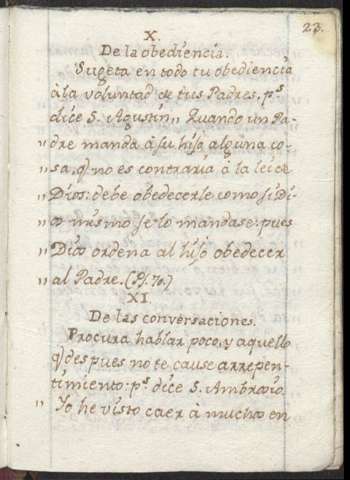 23.
X.
De la obediencia.
Sugeta en todo tu obediencia
à la voluntad de tus Padres, ps
dice S. Agustin,, Quando un Pa-
,, dre manda à su hijo alguna co-
,, sa, q̃ no es contraria à la lei de
,, Dios: debe obedecerle como si Di-
,, os mismo se lo mandase: pues
,, Dios ordena al hijo obedecer
,, al Padre. (Ps. 70.)
XI.
De las conversaciones.
Procura hablar poco, y aquello
q̃ despues no te cause arrepen-
timiento: ps dice S. Ambrosio.
,, Yo he visto caer à muchos en